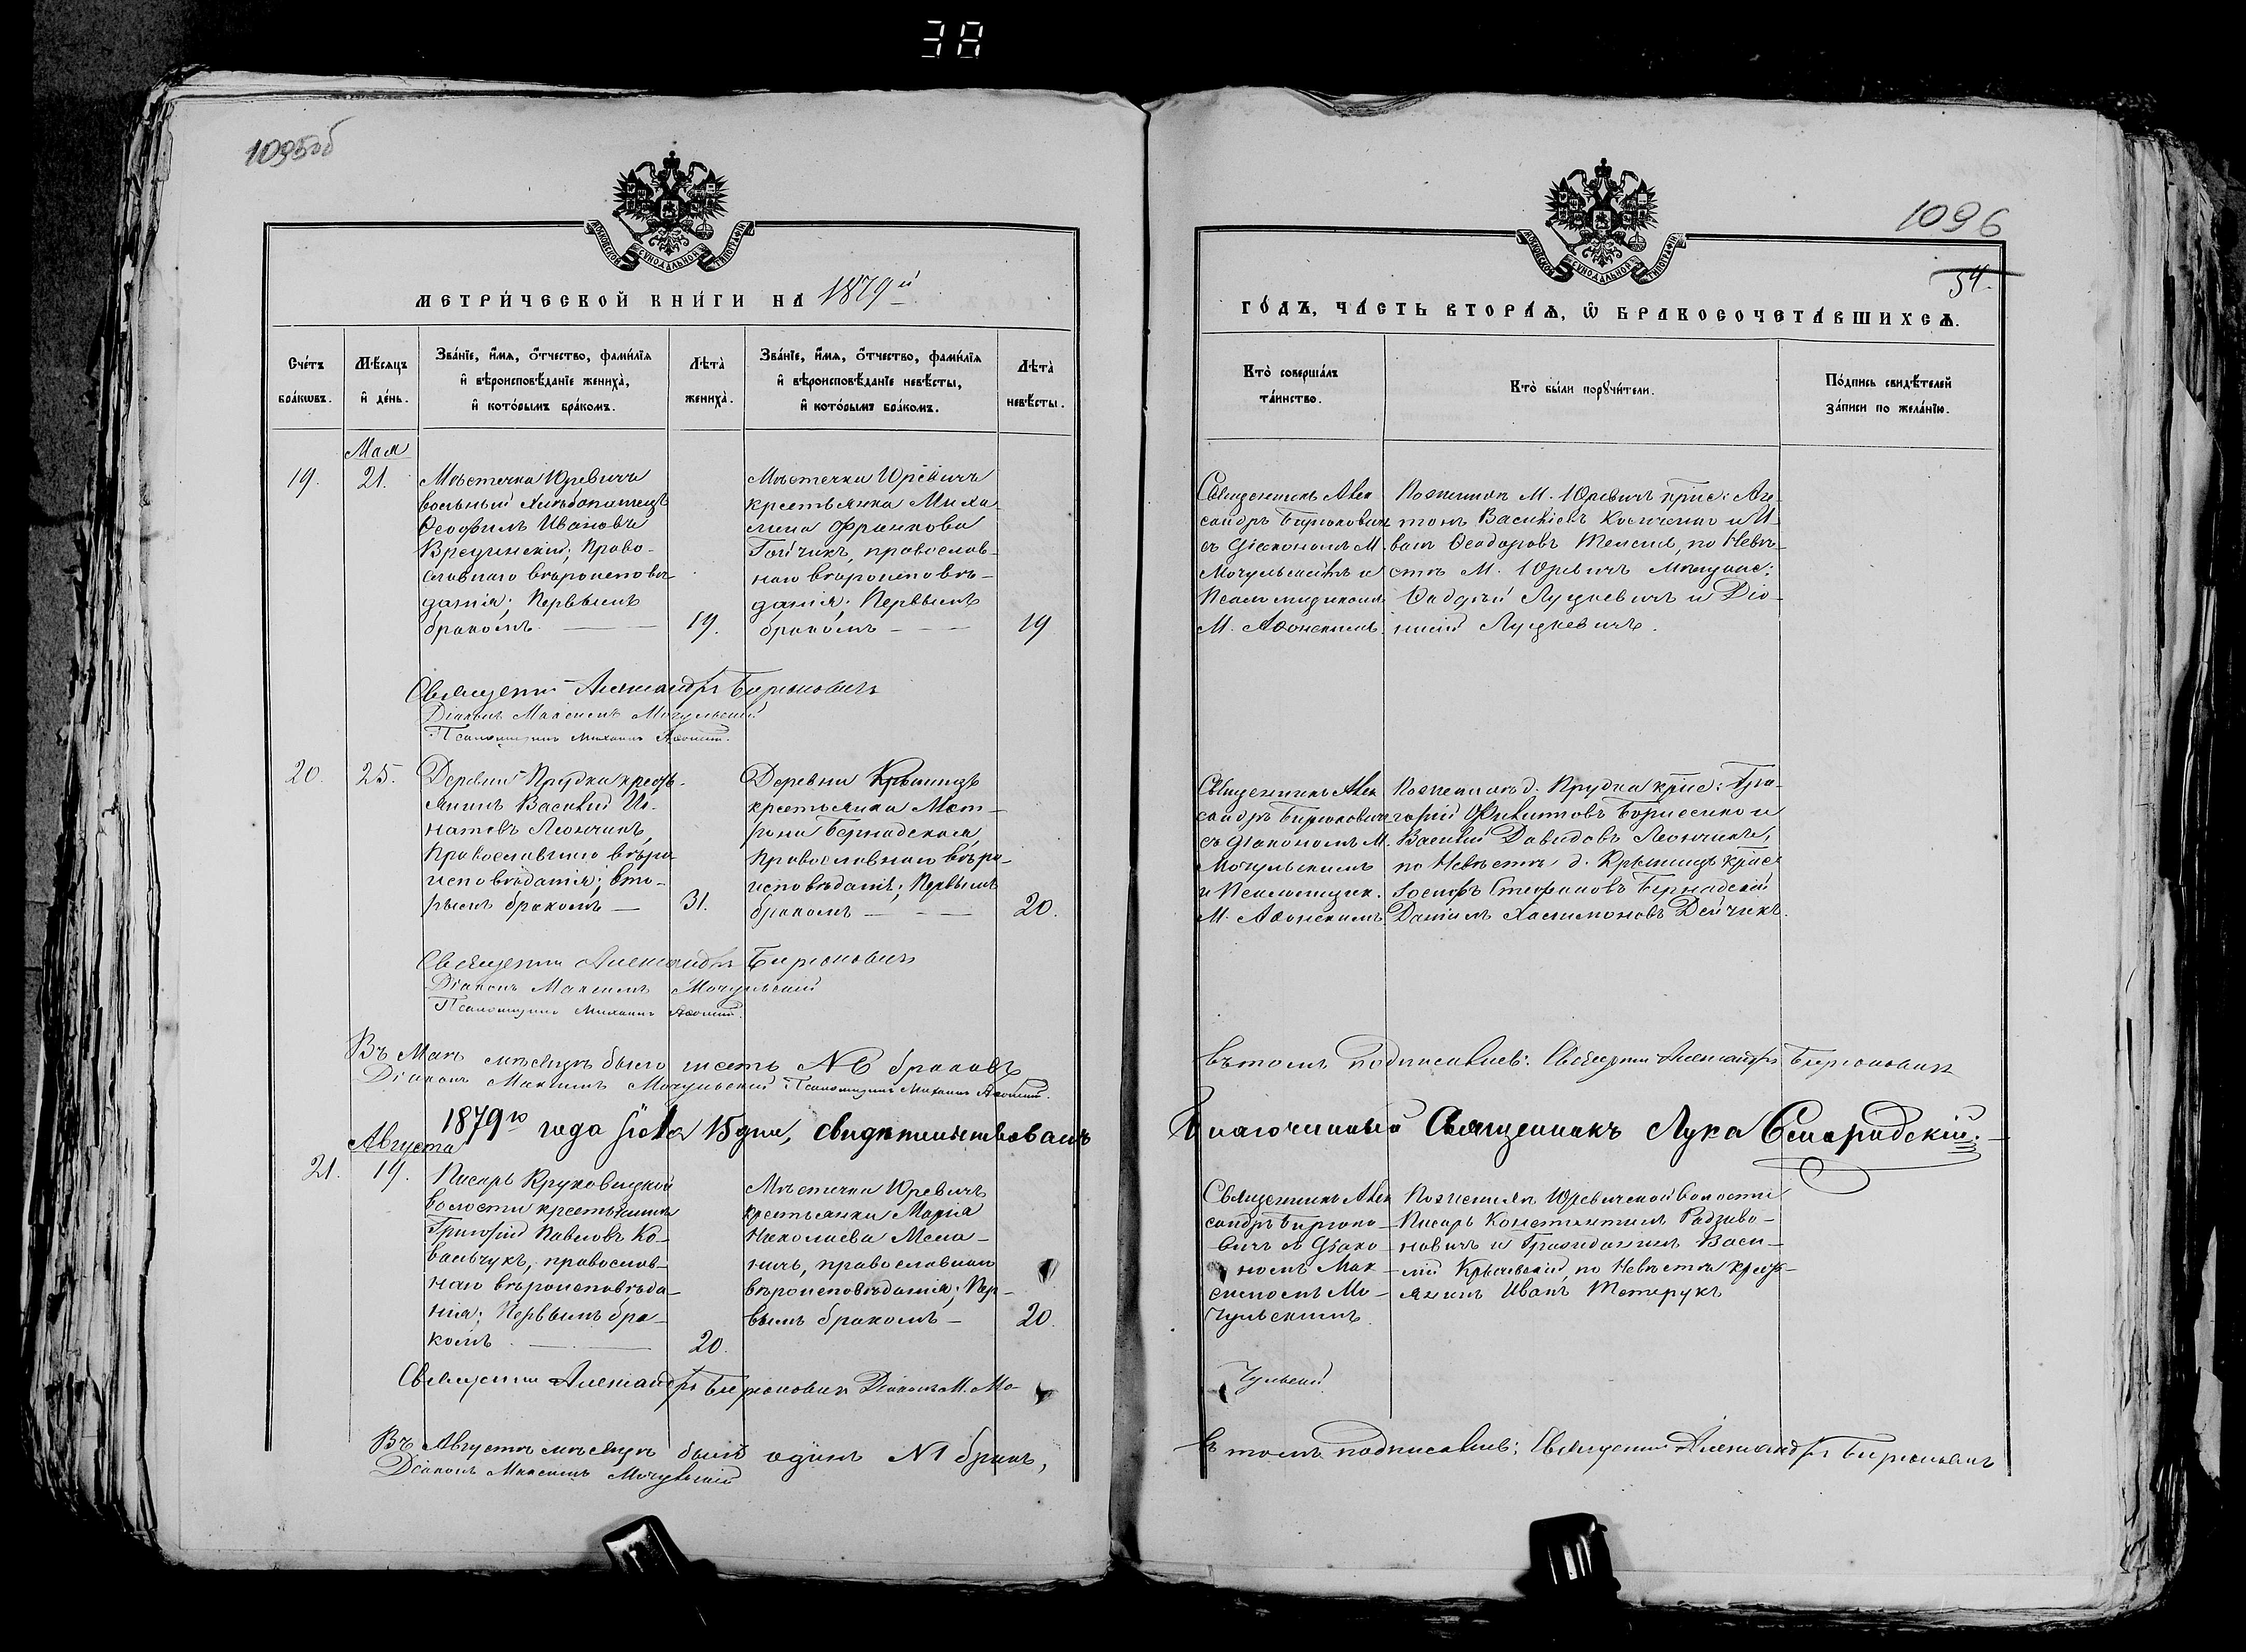 38
1095об
МОСКОВСКОЙ СѴНОДАЛЬНОЙ ТИПОГРАФІИ
МЕТРИ́ЧЕСКОЙ КНИ́ГИ НА 1879й
Сче́тъ бра́ковъ.
Мѣ́сяцъ и де́нь.
Зва́нїе, и́мѧ, о́тчество, фами́лїѧ и вѣроисповѣ́данїе жениха̀, и кото́рымъ бра́комъ.
Лѣ́та жениха̀.
Зва́нїе, и́мѧ, о́тчество, фами́лїѧ и вѣроисповѣ́данїе невѣ́сты, и кото́рымъ бра́комъ.
Лѣ́та невѣ́сты.
Мая
19.
21.
Мѣстечка Юревичъ
вольный хлѣбопашецъ
Ѳеофилъ Ивановъ
православнаго вѣроисповѣ-
данія; первымъ
бракомъ
19.
Мѣстечка Юревичъ
крестьянка Миха-
лина Францова
православ-
наго вѣроисповѣ-
данія; первымъ
бракомъ
19
Священникъ Александръ Бирюковичъ
Діаконъ Максимъ Мочульскій
Псаломщикъ Михаилъ Аѳонскій.
20.
25.
Деревни Прудка кресть-
янинъ Василій Иг-
натовъ Леончикъ,
православнаго вѣро-
исповѣданія; вто-
рымъ бракомъ
31.
Деревни Крышицъ
крестьянка Мот-
рона Бернадская,
православнаго вѣро-
исповѣданія; первымъ
бракомъ
20.
Священникъ Александръ Бирюковичъ
Діаконъ Максимъ Мочульскій
Псаломщикъ Михаилъ Аѳонскій.
Въ Маѣ мѣсяцѣ было шесть №6 браковъ
Діаконъ Максимъ Мочульскій Псаломщикъ Михаилъ Аѳонскій.
1879го года Іюля 15 дня, свидѣтельствовалъ
Августа
21.
19.
Писарь Круковицкой
волости крестьянинъ
Григорій Павловъ Ко-
вальчукъ, православ-
наго вѣроисповѣда-
нія; первымъ бра-
комъ
20.
Мѣстечка Юревичъ
крестьянка Марія
Николаева Мела-
ничъ, православнаго
вѣроисповѣданія; пер-
вымъ бракомъ
20.
Священникъ Александръ Бирюковичъ Діаконъ М. Мо-
Въ Августѣ мѣсяцѣ былъ одинъ №1 бракъ,
Діаконъ Максимъ Мочульскій
1096
54.
МОСКОВСКОЙ СѴНОДАЛЬНОЙ ТИПОГРАФІИ
ГО́ДЪ, ЧА́СТЬ ВТОРА́Ѧ, Ѿ БРАКОСОЧЕТА́ВШИХСѦ.
Кто̀ соверша́лъ та́инство.
Кто̀ бы́ли порꙋчи́тели.
По́дпись свидѣ́телей за́писи по жела́нїю.
Священникъ Алек-
сандръ Бирюковичъ
съ Діакономъ М.
Мочульскимъ и
Псаломщикомъ
М. Аѳонскимъ.
По женихѣ М. Юревичъ крес: Ан-
тонъ Васильевъ и И-
ванъ Ѳеодоровъ по невѣ-
стѣ М. Юревичъ мѣщане:
Ѳаддей Луцкевичъ и Діо-
нисій Луцкевичъ.
Священникъ Алек-
сандръ Бирюковичъ
съ Діакономъ М.
Мочульскимъ
и Псаломщик.
М. Аѳонскимъ.
По женихѣ д. Прудка крес: Гри-
горій Филиповъ Борисенко и
Василій Давидовъ Леончикъ,
по невѣстѣ д. Крышицъ крес:
Іосифъ Стефановъ Бернадскій
Даніилъ Дейчикъ.
въ томъ подписались: Священникъ Александръ Бирюковичъ
Благочинный Священникъ Лука Смарадскій.
Священникъ Алек-
сандръ Бирюко-
вичъ съ Діако-
номъ Мак-
симомъ Мо-
чульскимъ
По женихѣ Юревичской волости
Писарь Константинъ Радзиво-
новичъ и Гражданинъ Васи-
лій по невѣстѣ кресть-
янинъ Иванъ Тетерукъ
чульскій.
въ томъ подписались: Священникъ Александръ Бирюковичъ